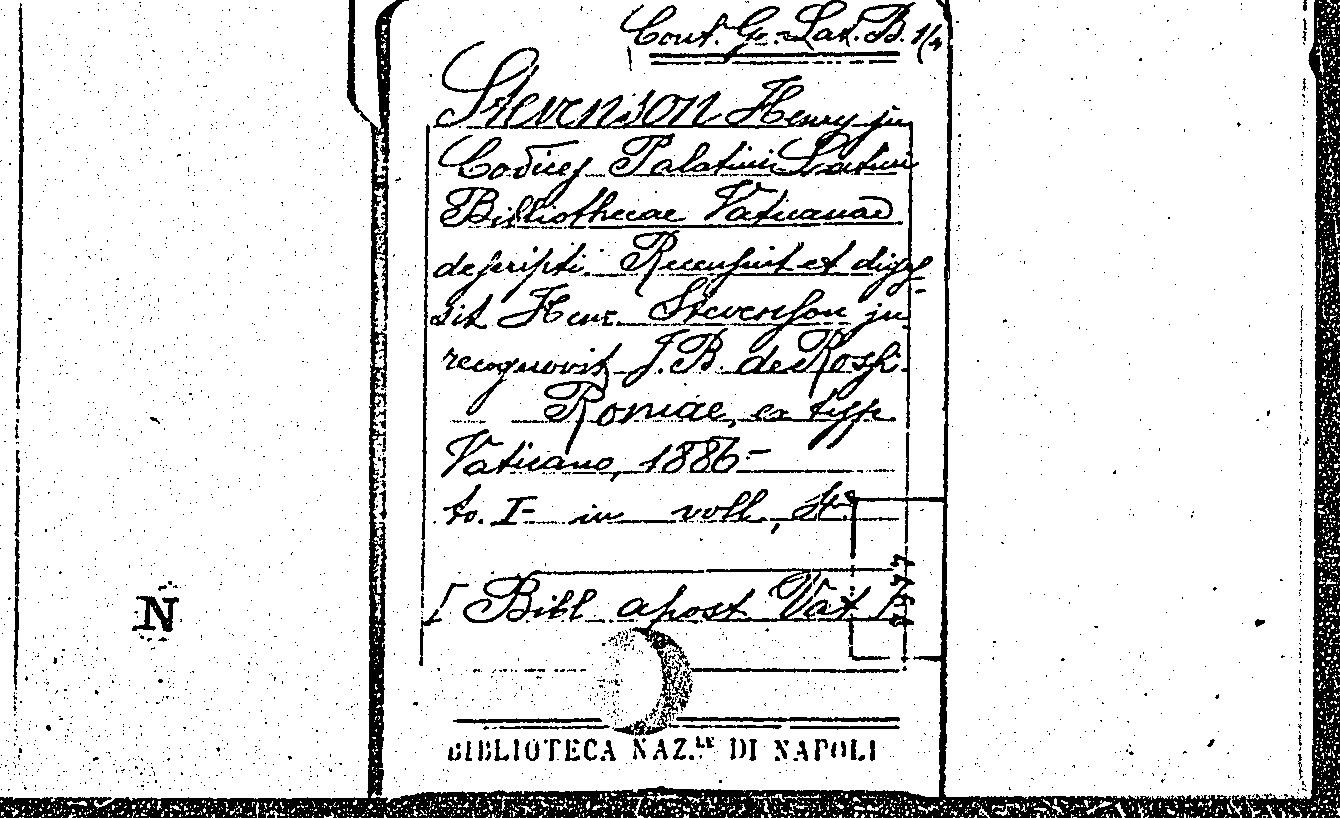 Cont. G. Lat. B. 1/4
Stevenson Henry ju
Codices Palatini Latini
Bibliothecae Vaticanae
descripti. Recensuit et diges
sit Henr. Stevenson ju
recognovit J. B. de Rossi.
Romae, ex typ
Vaticano, 1886-
to. I- in voll, 4°
[Bibl apost Vat]
N
BIBLIOTECA NAZ.LE DI NAPOLI